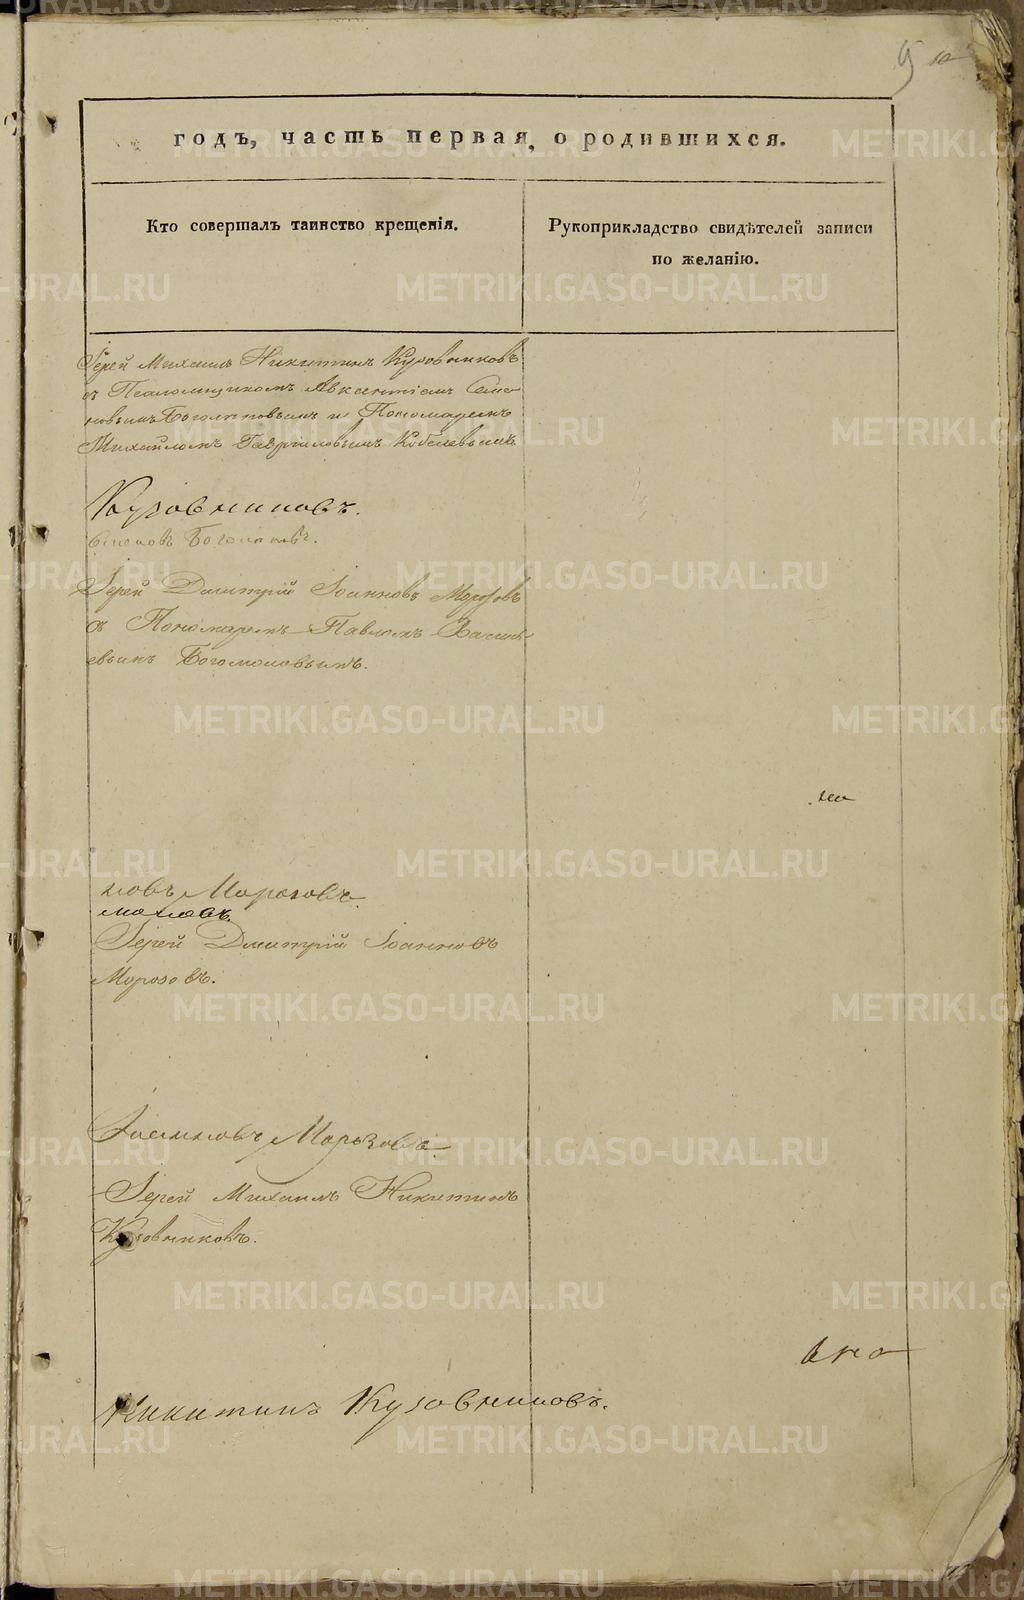 годъ, часть первая, о родившихся.
Кто совершалъ таинство крещенія.
Рукоприкладство свидѣтелей записи
по желанію.
Іерей Михаилъ Никитинъ Кузовниковъ
съ Псаломщикомъ Авксентіемъ Семе-
новымъ Боголѣповымъ и Пономаремъ
Михаиломъ Гавриловымъ
Кузовниковъ.
Семеновъ Боголѣповъ.
Іерей Дмитрій Іоанновъ Морозовъ
съ Пономаремъ Павломъ Василь-
евымъ Богомоловымъ.
новъ Морозовъ
моловъ.
Іерей Дмитрій Іоанновъ
Морозовъ.
Іоанновъ Морозовъ.
Іерей Михаилъ Никитинъ
Кузовниковъ.
Никитинъ Кузовниковъ.
METRIKI.GASO-URAL.RU